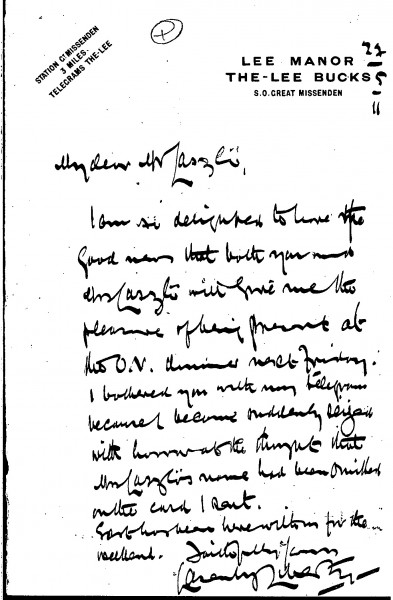 STATION Gt MISSENDEN
3 MILES.
TELEGRAMS THE-LEE
LEE MANOR
THE-LEE BUCKS
S.O. GREAT MISSENDEN
22
5
11
My dear Mr Laszlō,
I am so delighted to have the
good news that both you and
Mrs Laszlō will give me the
pleasure of being present at
the O.V. dinner next Friday.
I bothered you with my telegram
because I became suddenly seized
with horror at the thought that
Mrs Laszlō's name had been omitted
on the card I sent.
has been here with us for the
weekend. Faithfully Yours
Liberty